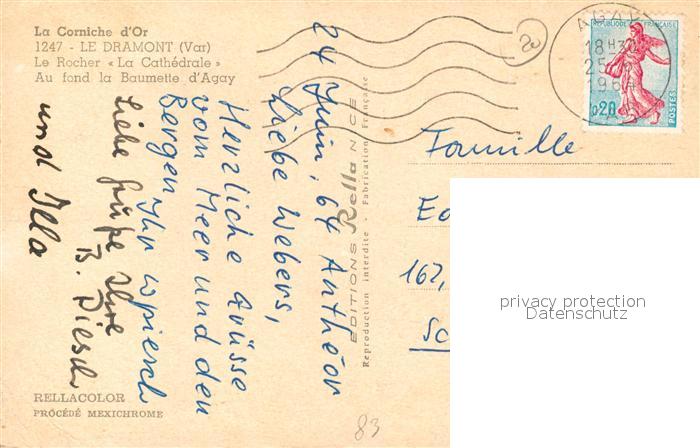 La Corniche d'Or
1247 - LE DRAMONT (Var)
Le Rocher « La Cathédrale »
Au fond la Baumette d'Agay
24 Juin, 64 Anthéor
Liebe Webers,
Herzliche Grüsse
vom Meer und den
Bergen
Ihr
Liebe Grüße Ihre
B. Piesch
und Illa
EDITIONS Rella NICE
Reproduction interdite - Fabrication Française
RELLACOLOR
PROCÉDÉ MEXICHROME
20
AGAY
18H30
25
1964
0,20
POSTES
Familie
Ed
162,
Sc
privacy protection
Datenschutz
83